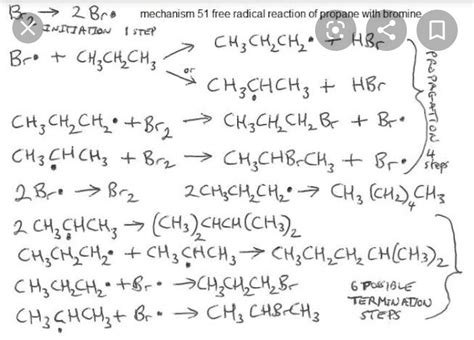 Br₂ → 2Br• mechanism 51 free radical reaction of propane with bromine
INITIATION 1 STEP
Br• + CH₃CH₂CH₃ → CH₃CH₂CH₂• + HBr
or
→ CH₃ĊHCH₃ + HBr
CH₃CH₂CH₂• + Br₂ → CH₃CH₂CH₂Br + Br•
CH₃ĊHCH₃ + Br₂ → CH₃CHBrCH₃ + Br•
PROPAGATION 4 steps
2Br• → Br₂ 2CH₃CH₂CH₂• → CH₃(CH₂)₄CH₃
2CH₃ĊHCH₃ → (CH₃)₂CHCH(CH₃)₂
CH₃CH₂CH₂• + CH₃ĊHCH₃ → CH₃CH₂CH₂CH(CH₃)₂
CH₃CH₂CH₂• + Br• → CH₃CH₂CH₂Br
CH₃ĊHCH₃ + Br• → CH₃CHBrCH₃
6 POSSIBLE
TERMINATION
STEPS